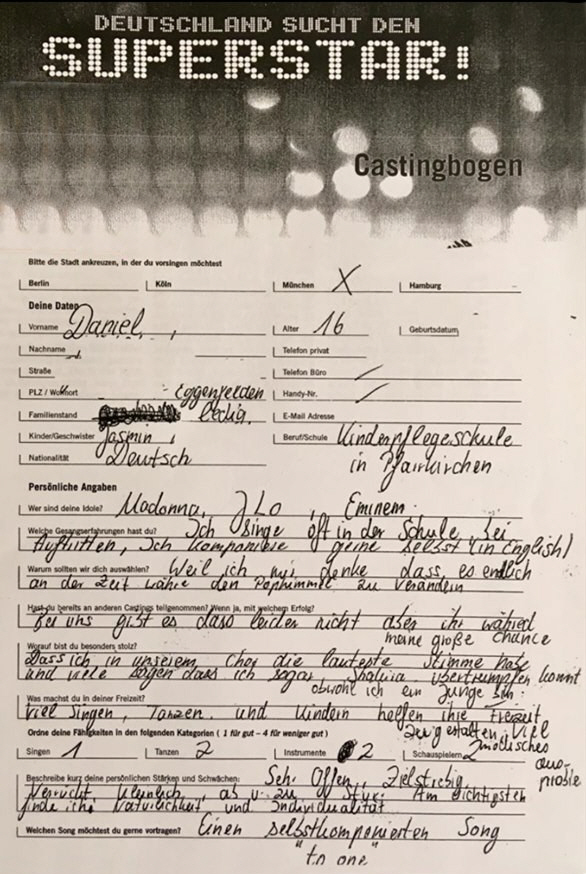 DEUTSCHLAND SUCHT DEN
SUPERSTAR!
Castingbogen
Bitte die Stadt ankreuzen, in der du vorsingen möchtest
Berlin Köln München X Hamburg
Deine Daten
Vorname Daniel Alter 16 Geburtsdatum
Nachname Telefon privat
Straße Telefon Büro
PLZ / Wohnort Eggenfelden Handy-Nr.
Familienstand ledig. E-Mail Adresse
Kinder/Geschwister Jasmin Beruf/Schule Kinderpflegeschule
Nationalität Deutsch in Pfarrkirchen
Persönliche Angaben
Wer sind deine Idole? Madonna, JLo, Eminem
Welche Gesangserfahrungen hast du? Ich singe oft in der Schule, bei
Auftritten, Ich komponiere gerne selbst (in English)
Warum sollten wir dich auswählen? Weil ich mir denke dass es endlich
an der Zeit währe den Pophimmel zu verändern
Hast du bereits an anderen Castings teilgenommen? Wenn ja, mit welchem Erfolg?
Bei uns gibt es dass leider nicht aber ihr währed
meine große Chance
Worauf bist du besonders stolz?
Dass ich in unserem Chor die lauteste Stimme habe
und viele sagen dass ich sogar übertrumpfen könnt
obwohl ich ein Junge bin
Was machst du in deiner Freizeit?
Viel Singen, Tanzen und Kindern helfen ihre Freizeit
zu gestalten, viel
Ordne deine Fähigkeiten in den folgenden Kategorien ( 1 für gut – 4 für weniger gut )
Singen 1 Tanzen 2 Instrumente 2 Schauspielern 2
modisches
aus-
probieren
Beschreibe kurz deine persönlichen Stärken und Schwächen: Sehr Offen, Zielstrebig,
Verrückt, ab u. zu Stur. Am wichtigsten
finde ich Natürlichkeit und Individualität
Welchen Song möchtest du gerne vortragen? Einen selbstkomponierten Song